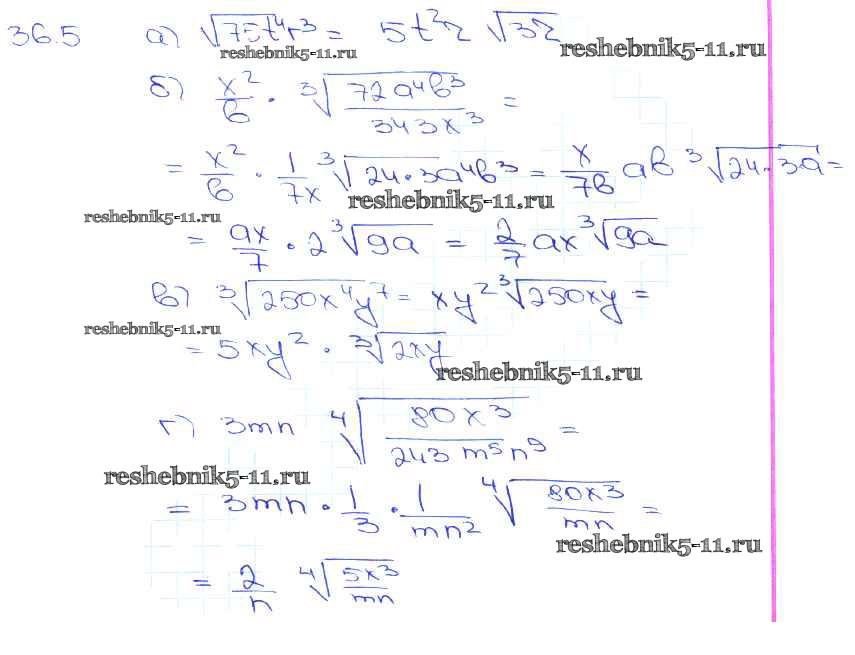 36.5 а) √75t⁴r³ = 5t²r √3r
reshebnik5-11.ru reshebnik5-11.ru
б) x²/b · ³√(72a⁴b³/343x³) =
= x²/b · 1/7x ³√24·3a⁴b³ = x/7b ab ³√24·3a =
reshebnik5-11.ru
reshebnik5-11.ru
= ax/7 · 2 ³√9a = 2/7 ax ³√9a
в) ³√250x⁴y⁷ = xy² ³√250xy =
reshebnik5-11.ru
= 5xy² · ³√2xy
reshebnik5-11.ru
г) 3mn ⁴√(80x³/243m⁵n⁹) =
reshebnik5-11.ru
= 3mn · 1/3 · 1/mn² ⁴√(80x³/mn) =
reshebnik5-11.ru
= 2/n ⁴√(5x³/mn)